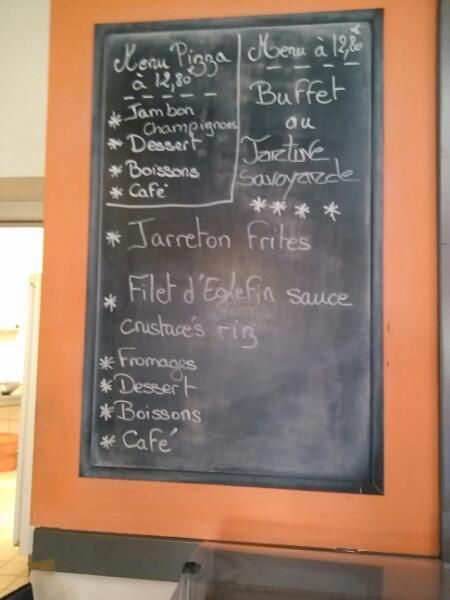 Menu Pizza
à 12,80€
* Jambon
Champignons
* Dessert
* Boissons
* Café
Menu à 12,80€
Buffet
ou
Tartine
Savoyarde
* * * *
* Jarreton frites
* Filet d'Eglefin sauce
crustacés riz
* Fromages
* Dessert
* Boissons
* Café